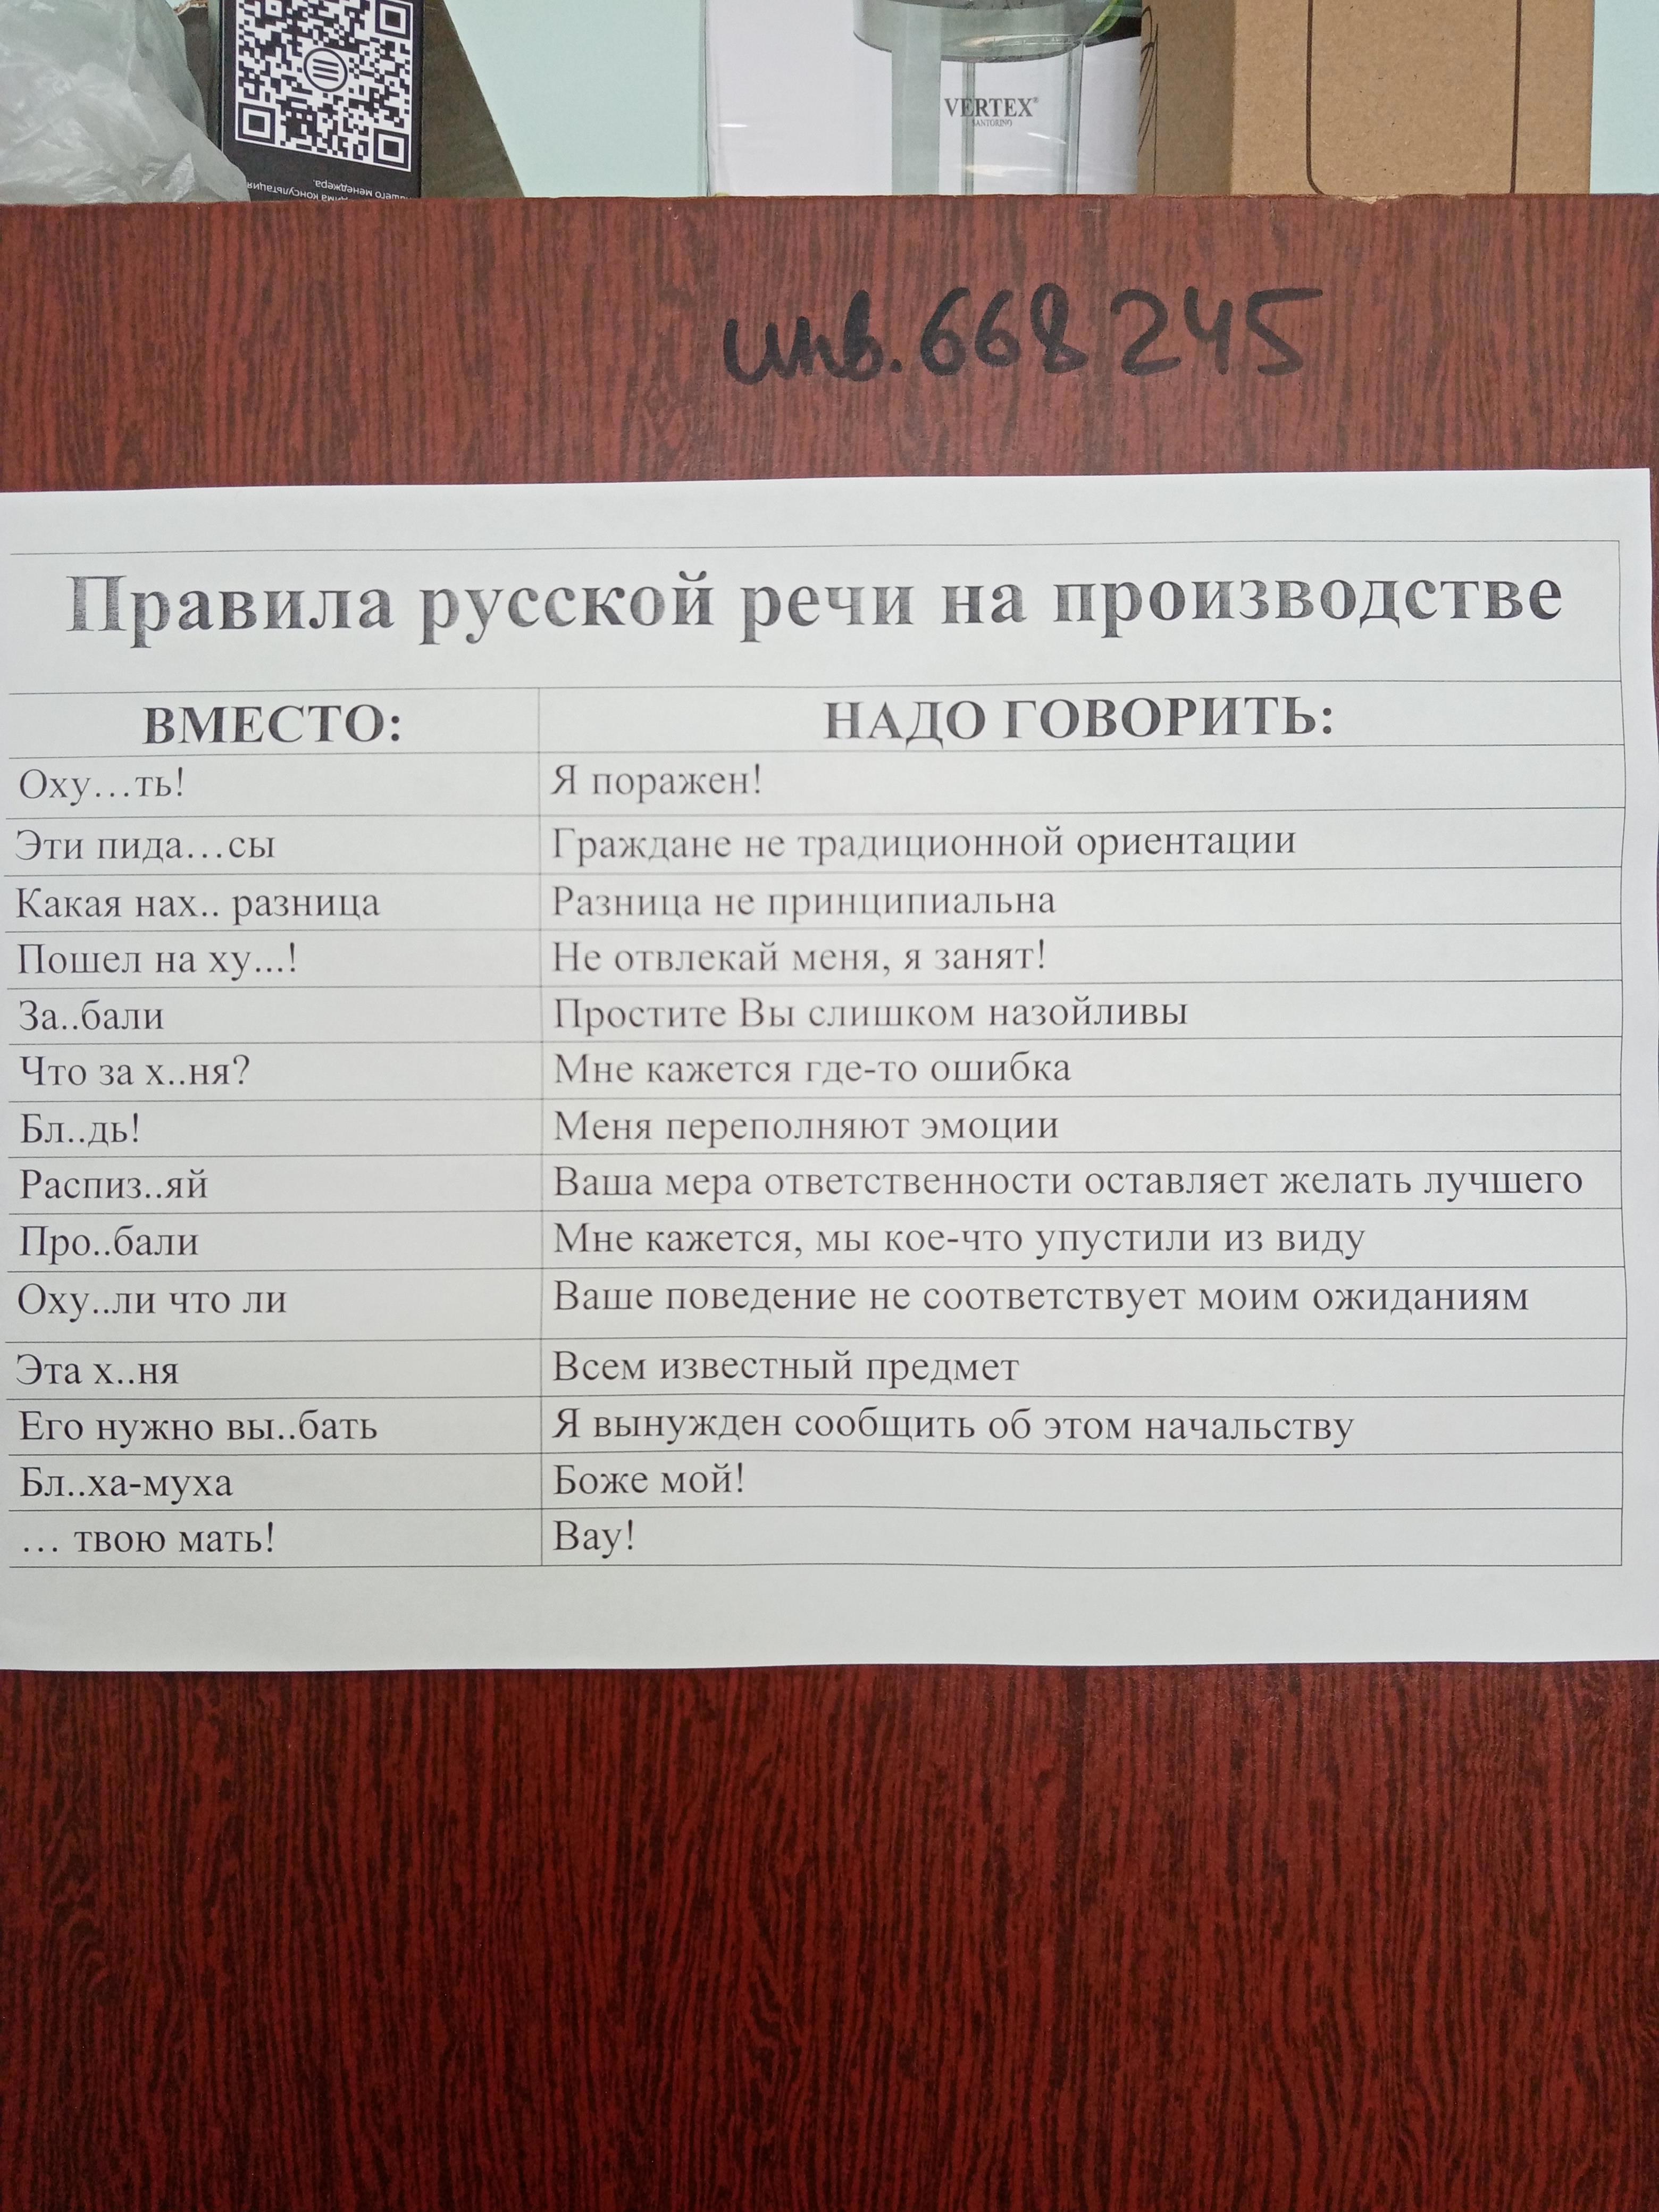 VERTEX®
SANTORINO
вашего менеджера.
консультация
инв. 668 245
Правила русской речи на производстве
ВМЕСТО: НАДО ГОВОРИТЬ:
Оху...ть! Я поражен!
Эти пида...сы Граждане не традиционной ориентации
Какая нах.. разница Разница не принципиальна
Пошел на ху...! Не отвлекай меня, я занят!
За..бали Простите Вы слишком назойливы
Что за х..ня? Мне кажется где-то ошибка
Бл..дь! Меня переполняют эмоции
Распиз..яй Ваша мера ответственности оставляет желать лучшего
Про..бали Мне кажется, мы кое-что упустили из виду
Оху..ли что ли Ваше поведение не соответствует моим ожиданиям
Эта х..ня Всем известный предмет
Его нужно вы..бать Я вынужден сообщить об этом начальству
Бл..ха-муха Боже мой!
... твою мать! Вау!